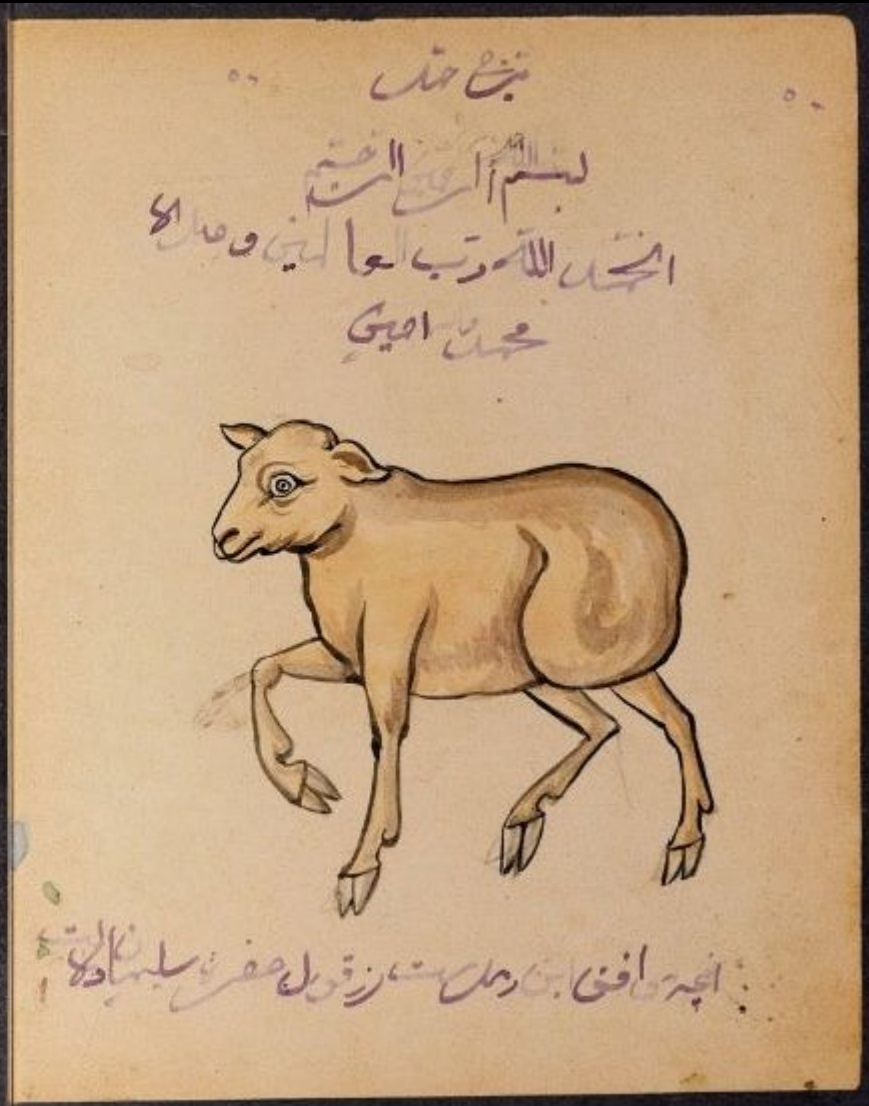 برج حمل
بسم الله الرحمن الرحیم
الحمد الله رب العالمین و صل الا
محمد امین
انچه موافق این رمل است از قول حضرت سلیمان